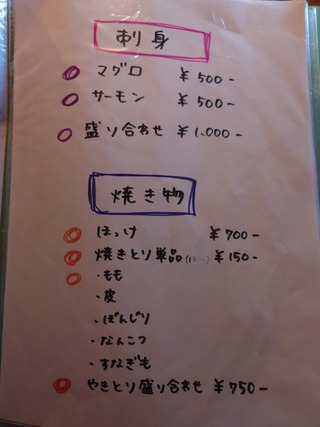 刺身
マグロ ￥500-
サーモン ￥500-
盛り合わせ ￥1,000-
焼き物
ほっけ ￥700-
焼きとり単品 ￥150-
・もも
・皮
・ぼんじり
・なんこつ
・すなぎも
やきとり盛り合わせ ￥750-